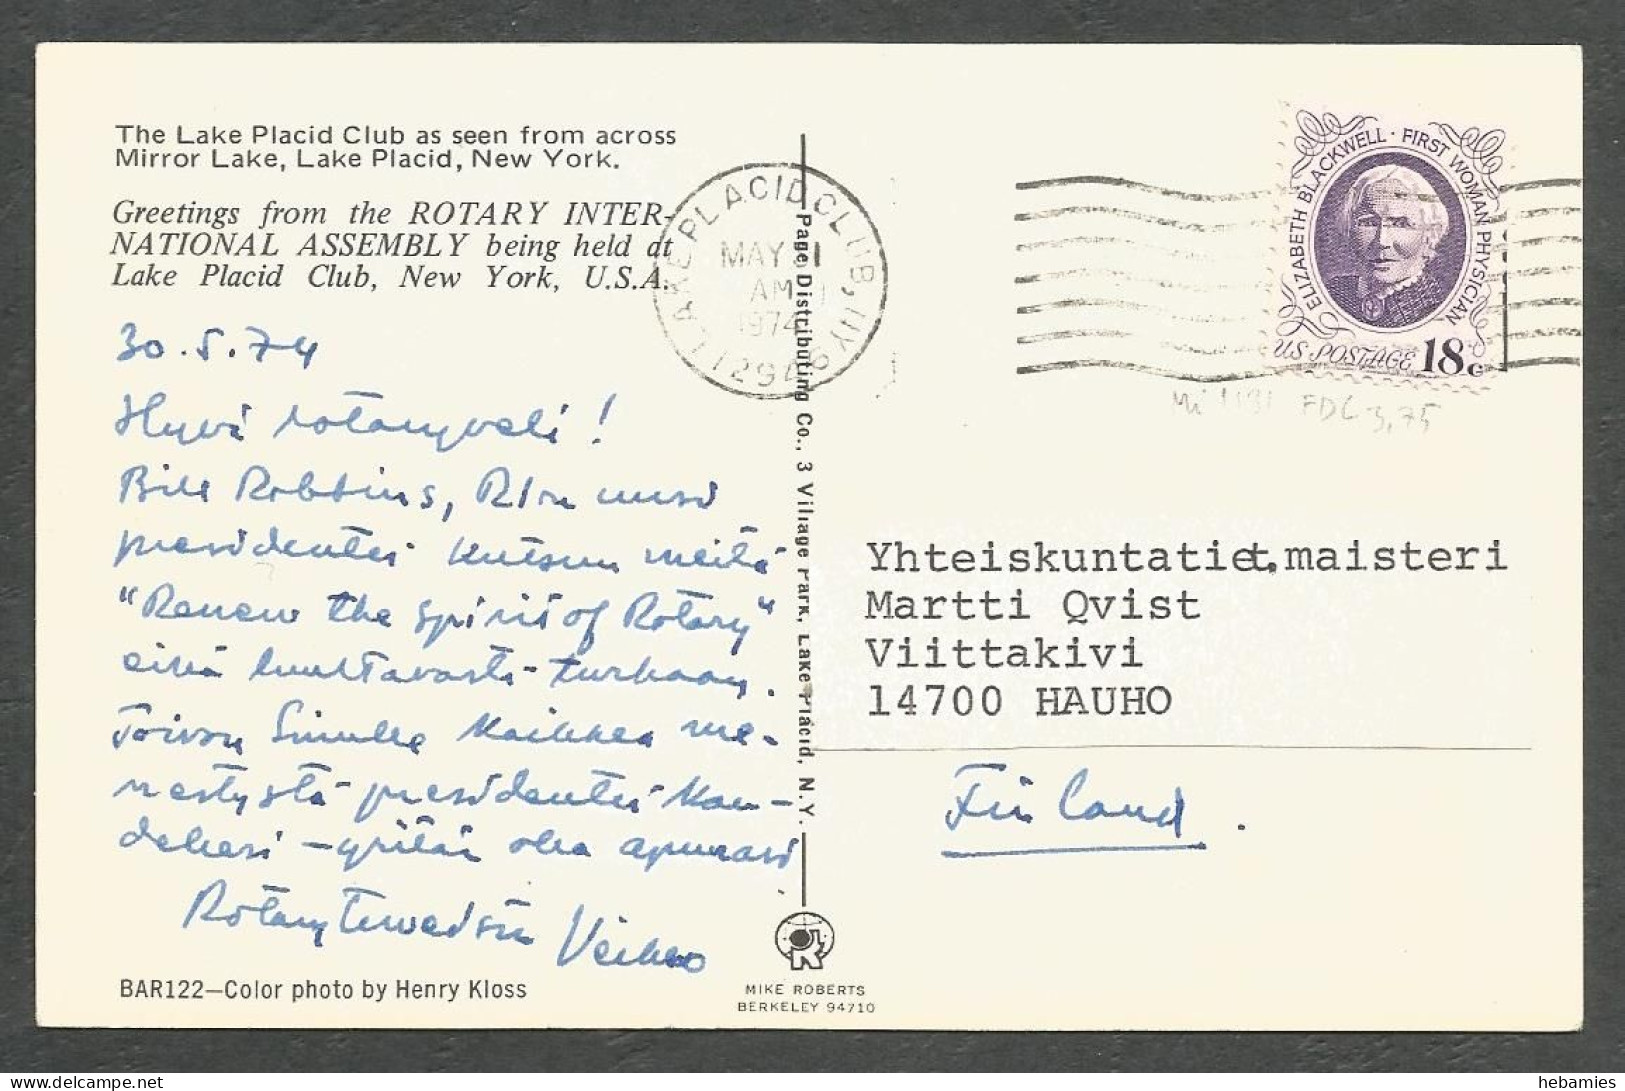 The Lake Placid Club as seen from across
Mirror Lake, Lake Placid, New York.
Greetings from the ROTARY INTER-
NATIONAL ASSEMBLY being held at
Lake Placid Club, New York, U.S.A.
30.5.74
Hyvä rotaryveli!
Bill Robbins, RI:n uusi
presidentti kutsuu meitä
"Renew the spirit of Rotary"
eikä luultavasti turhaan.
Toivon Sinulle kaikkea me-
nestystä presidentti kau-
deksesi - yritän olla apunasi
Rotary terveisin Veikko
BAR122—Color photo by Henry Kloss
Page Distributing Co., 3 Village Park, Lake Placid, N.Y.
MIKE ROBERTS
BERKELEY 94710
LAKE PLACID CLUB, NY
MAY 31
AM
1974
12948
ELIZABETH BLACKWELL · FIRST WOMAN PHYSICIAN
US POSTAGE 18c
Mi 1131 FDC 3,75
Yhteiskuntatiet.maisteri
Martti Qvist
Viittakivi
14700 HAUHO
Finland.
hebamies